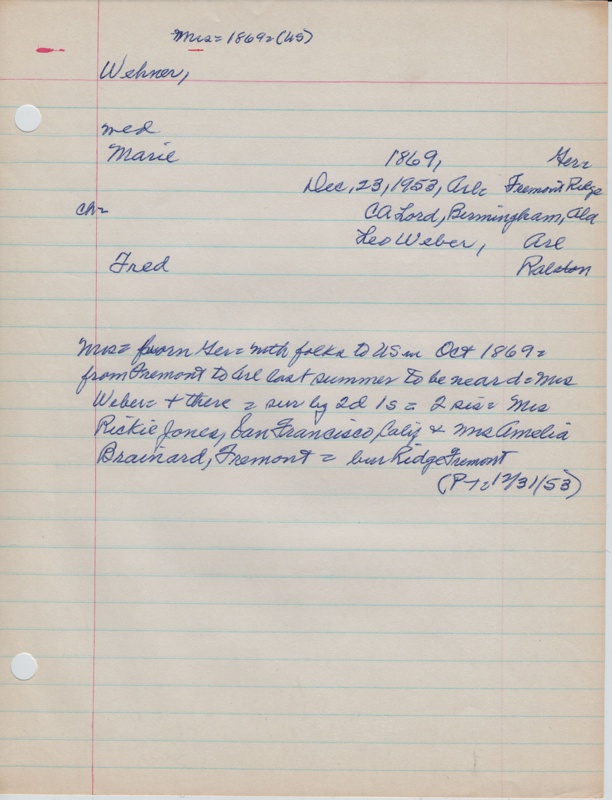 Mrs= 1869= (US)
Wehner,
med
Marie 1869, Ger=
Dec, 23, 1953, Arl= Fremont Ridge
ch= CA Lord, Birmingham, Ala
Leo Weber, Arl
Fred Ralston
Mrs= from Ger= with folks to US in Oct 1869=
from Fremont to Arl last summer to be near d= Mrs
Weber= + there = sur by 2d 1s = 2 sis= Mrs
Rickie Jones, San Francisco, Calif & Mrs Amelia
Brainard, Fremont = bur Ridge Fremont
(P-t= 12/31/53)